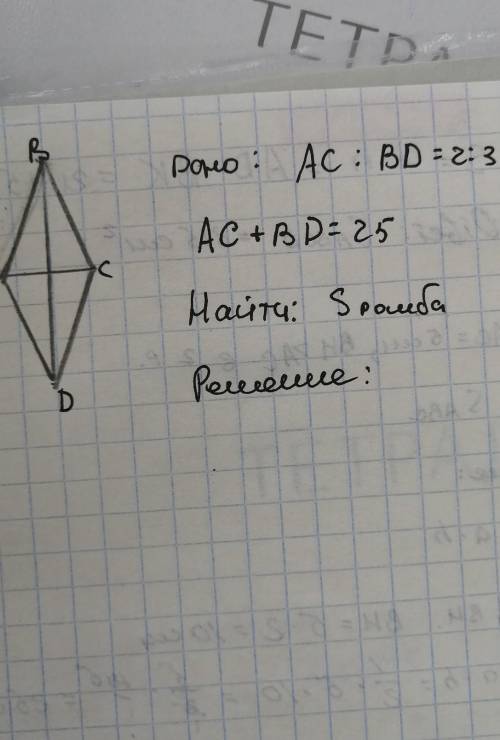 ТЕТРА
B
Дано: AC : BD = 2:3
AC + BD = 25
C
Найти: S ромба
Решение:
D